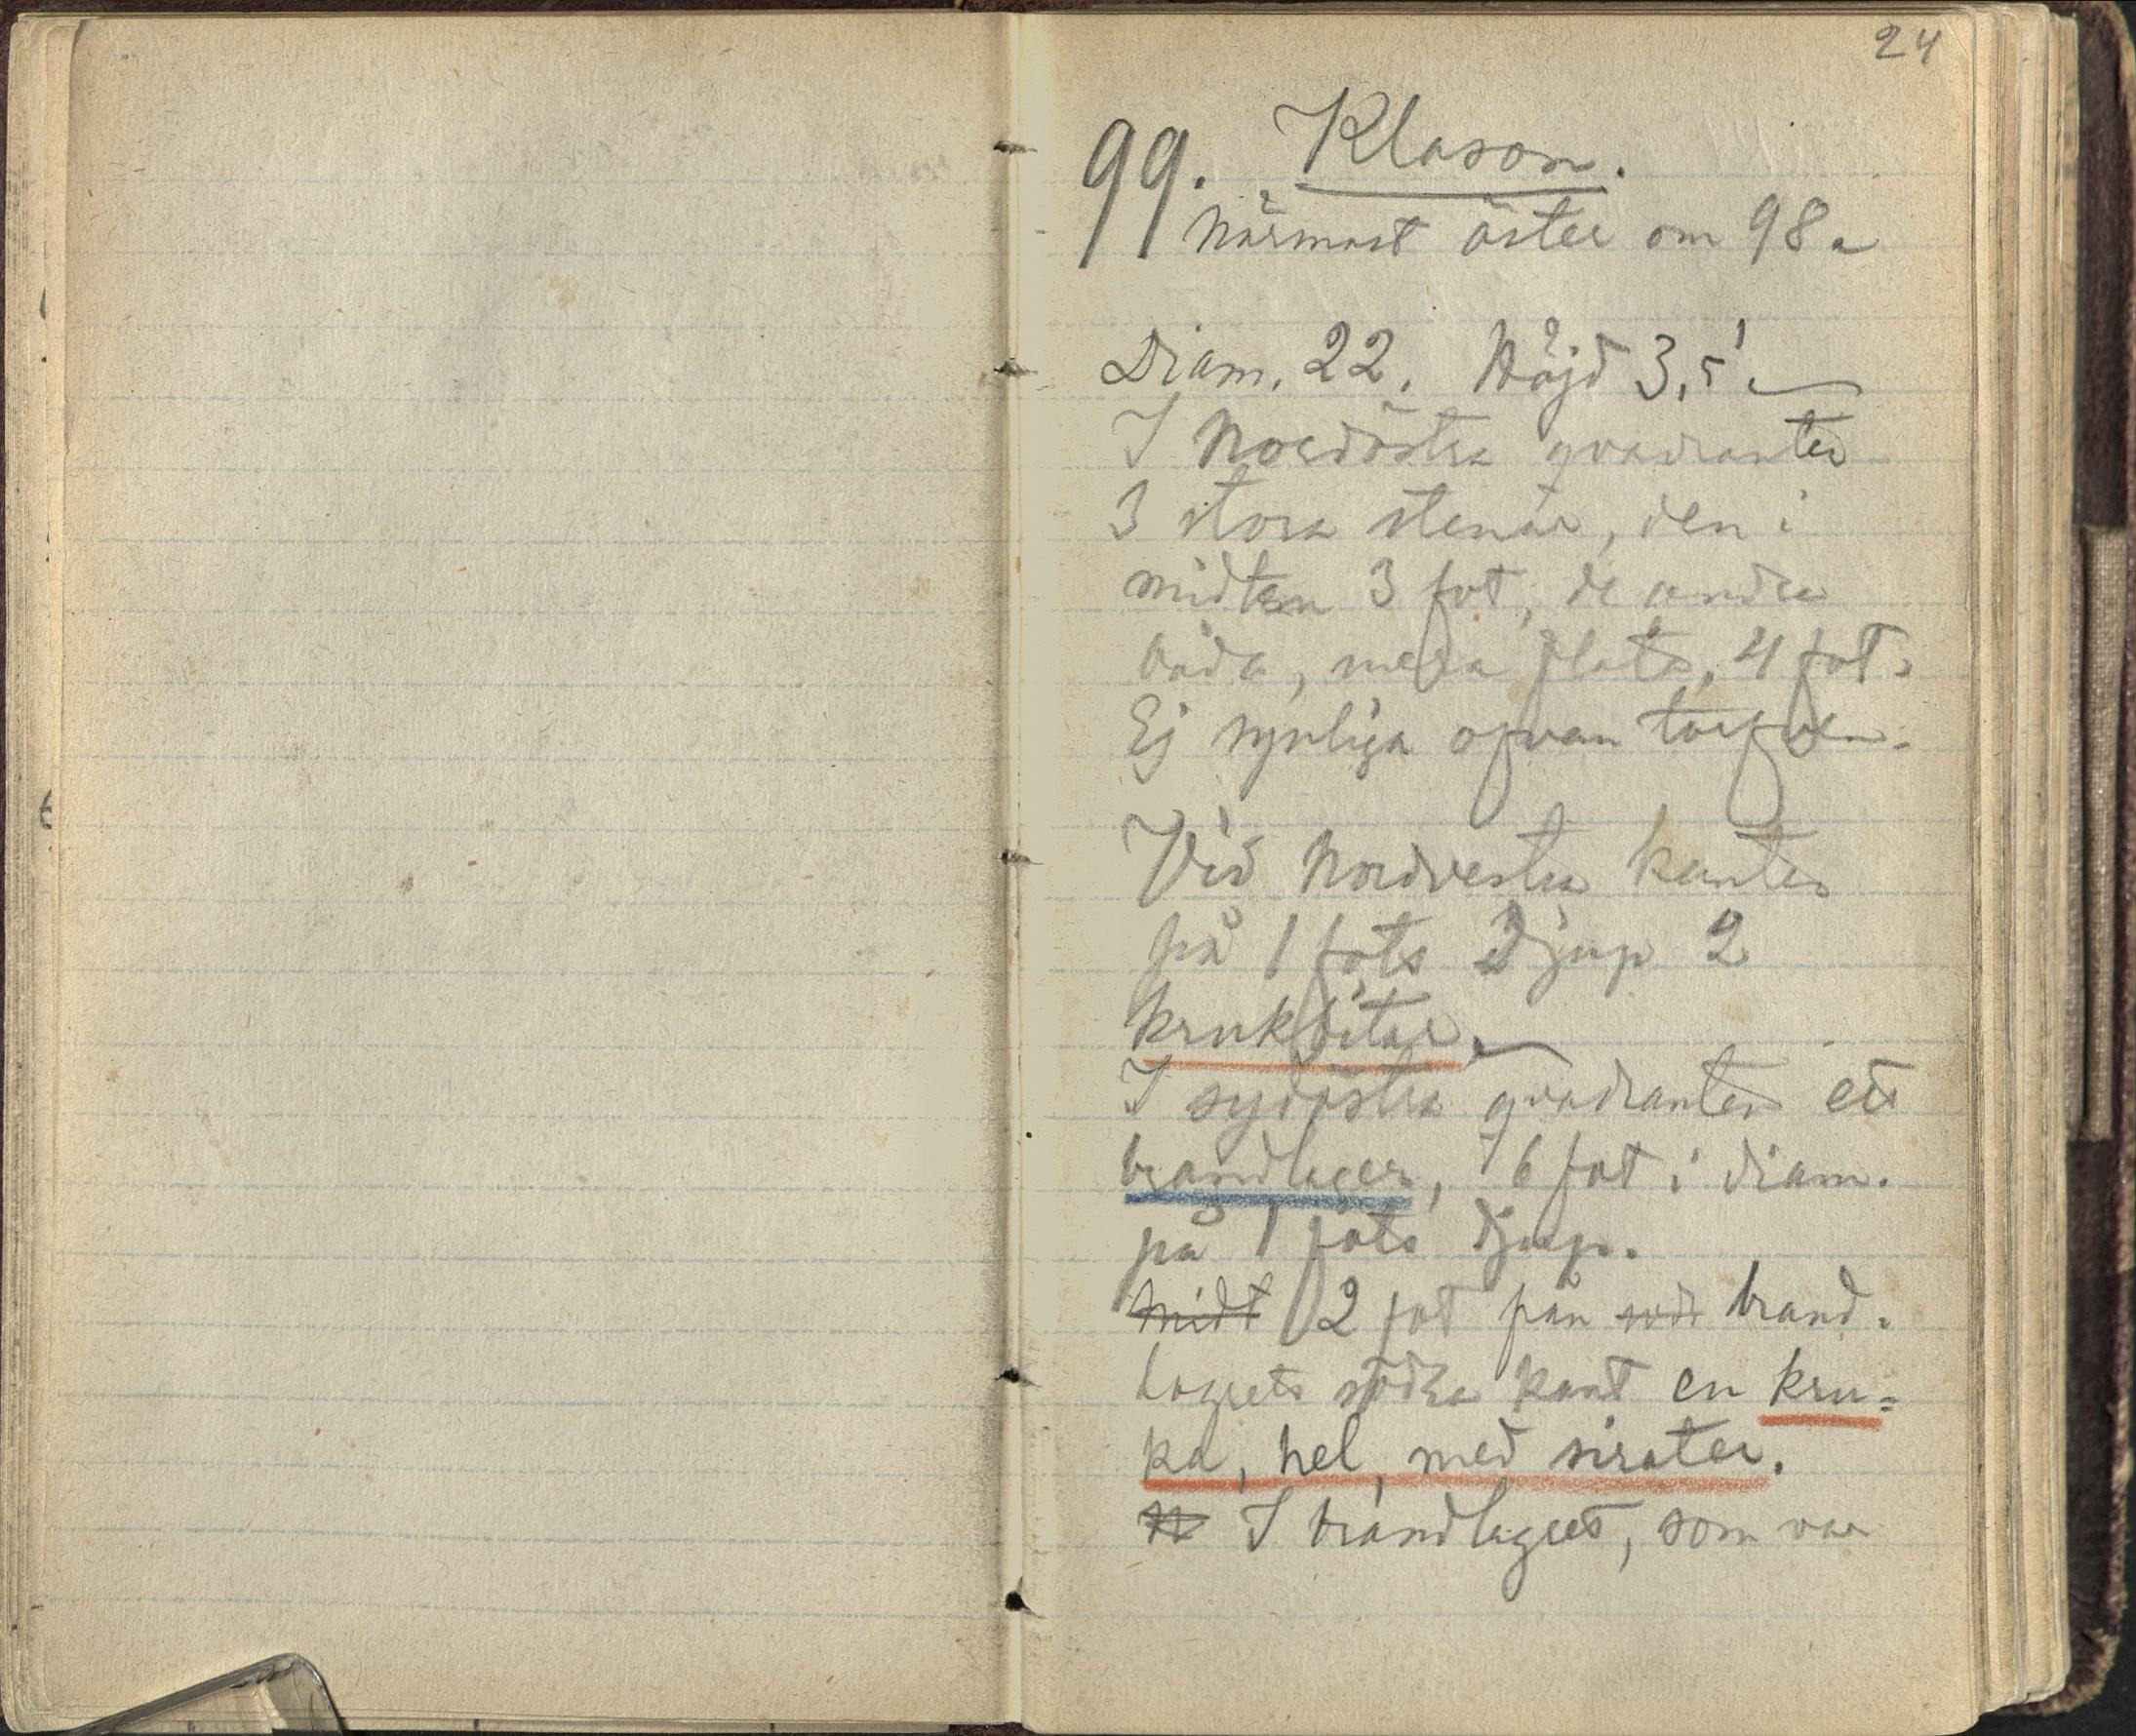 24
99. Klason.
Närmast öster om 98.
Diam. 22. Höjd 3,5'.
I Nordöstra qvadranten
3 stora stenar, den i
midten 3 fot, de andra
båda, mera flata, 4 fot.
Ej synliga ofvan torfven.
Vid Nordvestra kanten
på 1 fots djup 2
krukbitar.
I sydöstra qvadranten ett
brandlager, 6 fot i diam.
på 1 fots djup.
midt 2 fot från brand-
lagrets södra kant en kru=
ka, hel, med sirater.
I brandlagret, som var